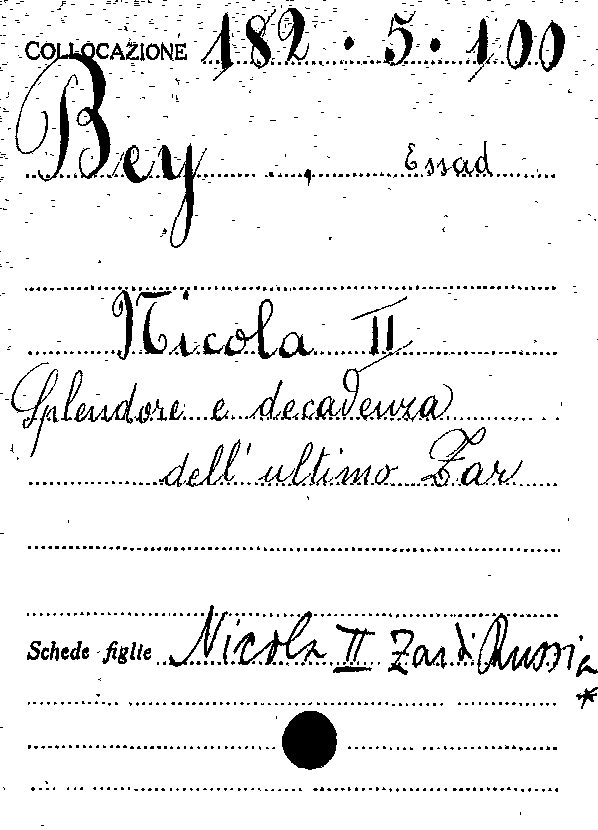 COLLOCAZIONE 182.5.100
Bey, Essad
Nicola II
Splendore e decadenza
dell'ultimo Zar
Schede figlie Nicola II Zar di Russia
*